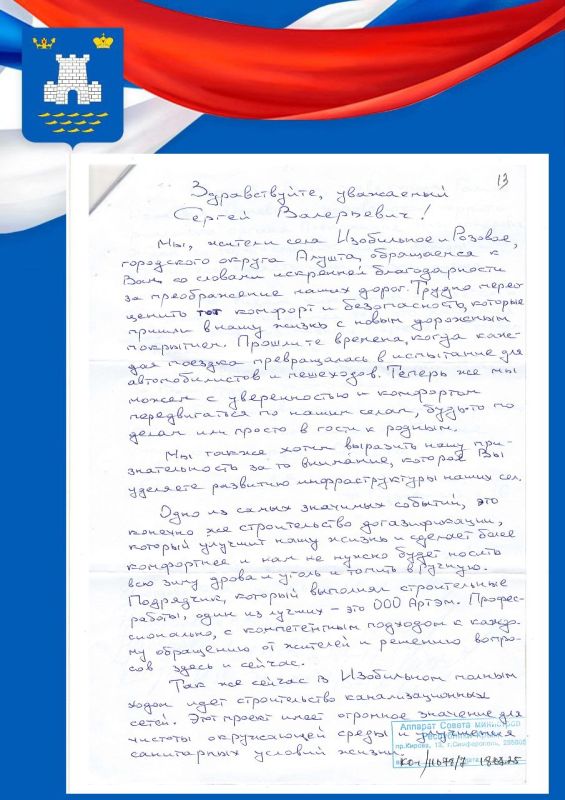 13
Здравствуйте, уважаемый
Сергей Валерьевич!
Мы, жители села Изобильное и Розовое,
городского округа Алушта, обращаемся к
Вам со словами искренней благодарности
за преображение наших дорог. Трудно перео
ценить тот комфорт и безопасность, которые
пришли в нашу жизнь с новым дорожным
покрытием. Прошли те времена, когда каж-
дая поездка превращалась в испытание для
автомобилистов и пешеходов. Теперь же мы
можем с уверенностью и комфортом
передвигаться по нашим селам, будь-то по
делам или просто в гости к родным.
Мы также хотим выразить нашу при-
знательность за то внимание, которое Вы
уделяете развитию инфраструктуры наших сел.
Одно из самых значимых событий, это
конечно же строительство догазификации,
который улучшит нашу жизнь и сделает более
комфортнее и нам не нужно будет носить
всю зиму дрова и уголь и топить вручную.
Подрядчик, который выполнял строительные
работы, один из лучших - это ООО Артэм. Профес-
сионально, с компетентным подходом к каждо-
му обращению от жителей и решению вопро-
сов здесь и сейчас.
Так же сейчас в Изобильном полным
ходом идет строительство канализационных
сетей. Этот проект имеет огромное значение для
чистоты окружающей среды и улучшения
санитарных условий жизни.
Аппарат Совета министров
Республики Крым
пр.Кирова, 13, г.Симферополь, 295005